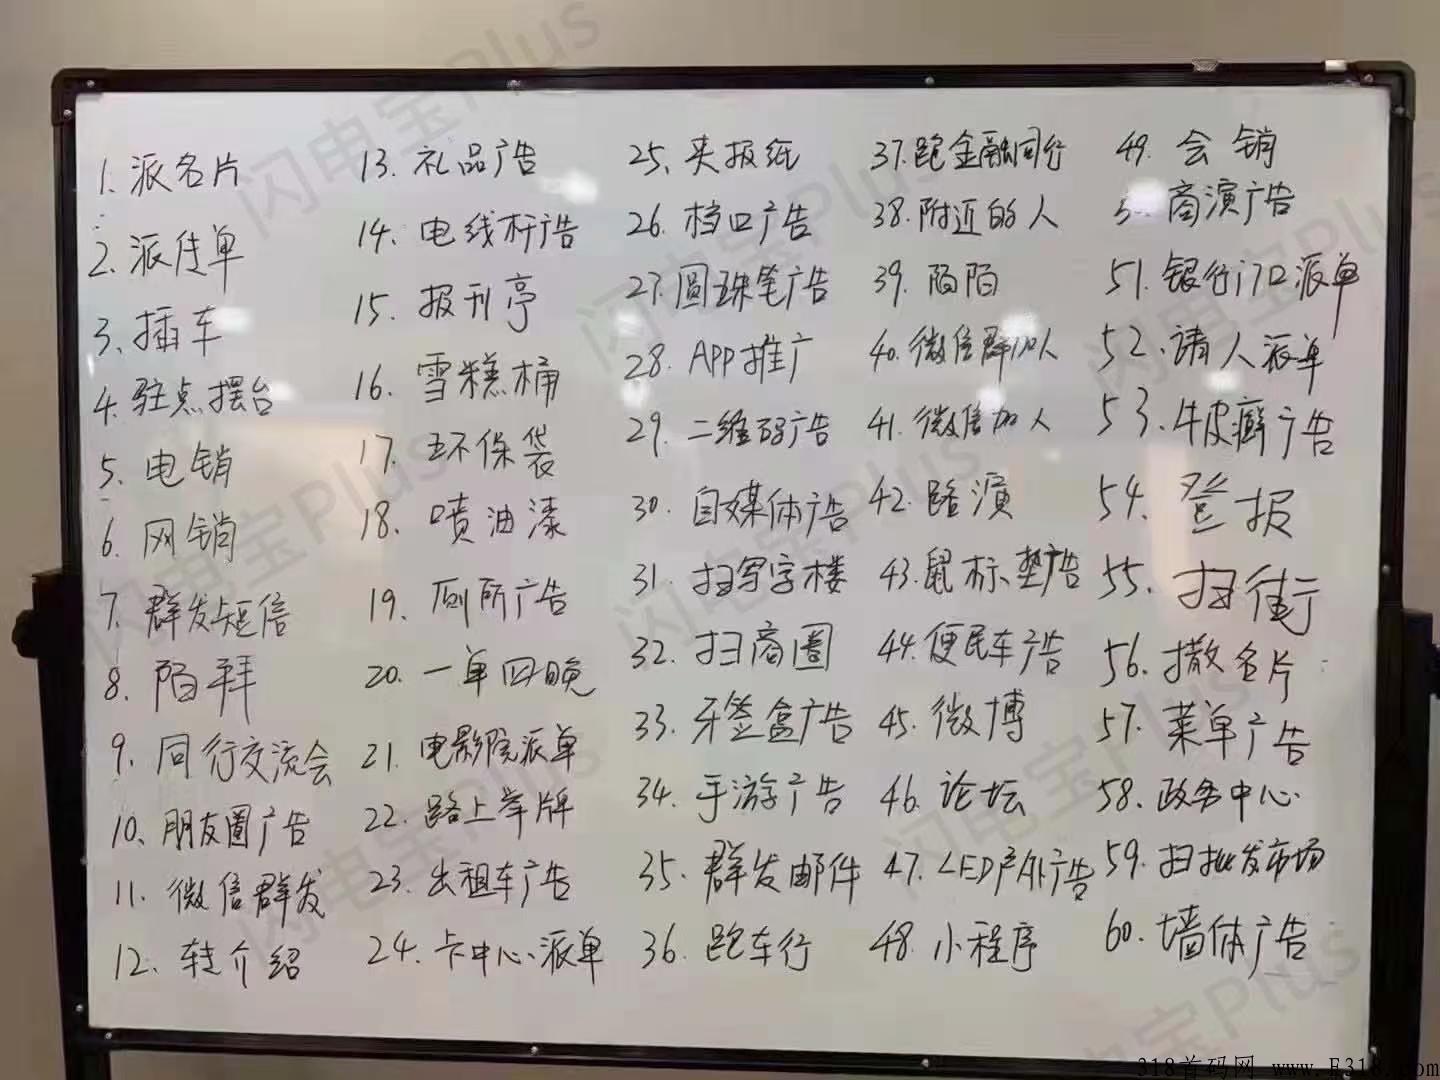 1. 派名片
2. 派传单
3. 插车
4. 驻点摆台
5. 电销
6. 网销
7. 群发短信
8. 陌拜
9. 同行交流会
10. 朋友圈广告
11. 微信群发
12. 转介绍
13. 礼品广告
14. 电线杆广告
15. 报刊亭
16. 雪糕桶
17. 环保袋
18. 喷油漆
19. 厕所广告
20. 一单四晚
21. 电影院派单
22. 路上举牌
23. 出租车广告
24. 卡中心派单
25. 夹报纸
26. 档口广告
27. 圆珠笔广告
28. APP推广
29. 二维码广告
30. 自媒体广告
31. 扫写字楼
32. 扫商圈
33. 牙签盒广告
34. 手游广告
35. 群发邮件
36. 跑车行
37. 跑金融同行
38. 附近的人
39. 陌陌
40. 微信群加人
41. 微信加人
42. 路演
43. 鼠标垫广告
44. 便民车广告
45. 微博
46. 论坛
47. LED户外广告
48. 小程序
49. 会销
商演广告
51. 银行门口派单
52. 请人派单
53. 牛皮癣广告
54. 登报
55. 扫街
56. 撒名片
57. 菜单广告
58. 政务中心
59. 扫批发市场
60. 墙体广告
闪电宝Plus
闪电宝Plus
闪电宝Plus
闪电宝Plus
闪电宝Plus
闪电宝Plus
闪电宝Plus
闪电宝Plus
318首码网 www.E318.com